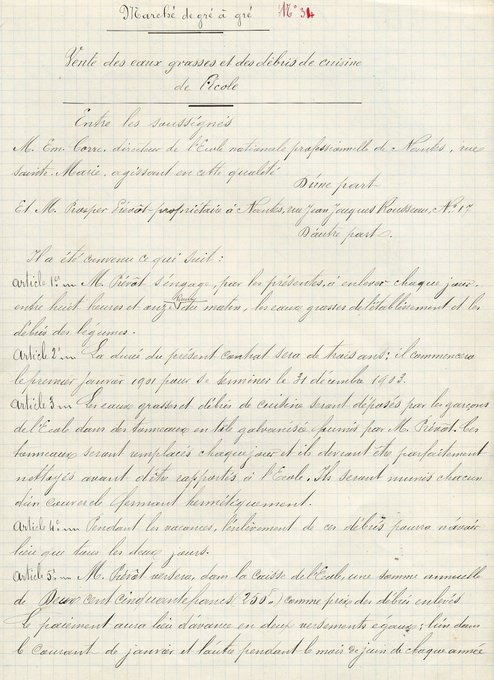 Marché de gré à gré N° 34
Vente des eaux grasses et des débris de cuisine
de l'Ecole
Entre les soussignés
M. Em. Corre, directeur de l'Ecole nationale professionnelle de Nantes, rue
Sainte-Marie, agissant en cette qualité
D'une part
Et M. Prosper Prévôt propriétaire à Nantes, rue Jean Jacques Rousseau, N° 17
D'autre part.
Il a été convenu ce qui suit :
Article 1er M. Prévôt s'engage, par les présentes, à enlever chaque jour,
entre huit heures et onze heures du matin, les eaux grasses de l'établissement et les
débris des légumes.
Article 2e La durée du présent contrat sera de trois ans ; il commencera
le premier janvier 1901 pour se terminer le 31 décembre 1903.
Article 3 Les eaux grasses et débris de cuisine seront déposés par les garçons
de l'Ecole dans des tonneaux en tôle galvanisée fournis par M. Prévôt. Ces
tonneaux seront remplacés chaque jour et ils devront être parfaitement
nettoyés avant d'être rapportés à l'Ecole. Ils seront munis chacun
d'un couvercle fermant hermétiquement.
Article 4e Pendant les vacances, l'enlèvement de ces débris pourra n'avoir
lieu que tous les deux jours.
Article 5e M. Prévôt versera, dans la caisse de l'Ecole, une somme annuelle
de Deux cent cinquante francs (250f) comme prix des débris enlevés
Le paiement aura lieu d'avance en deux versements égaux ; l'un dans
le courant de janvier et l'autre pendant le mois de juin de chaque année